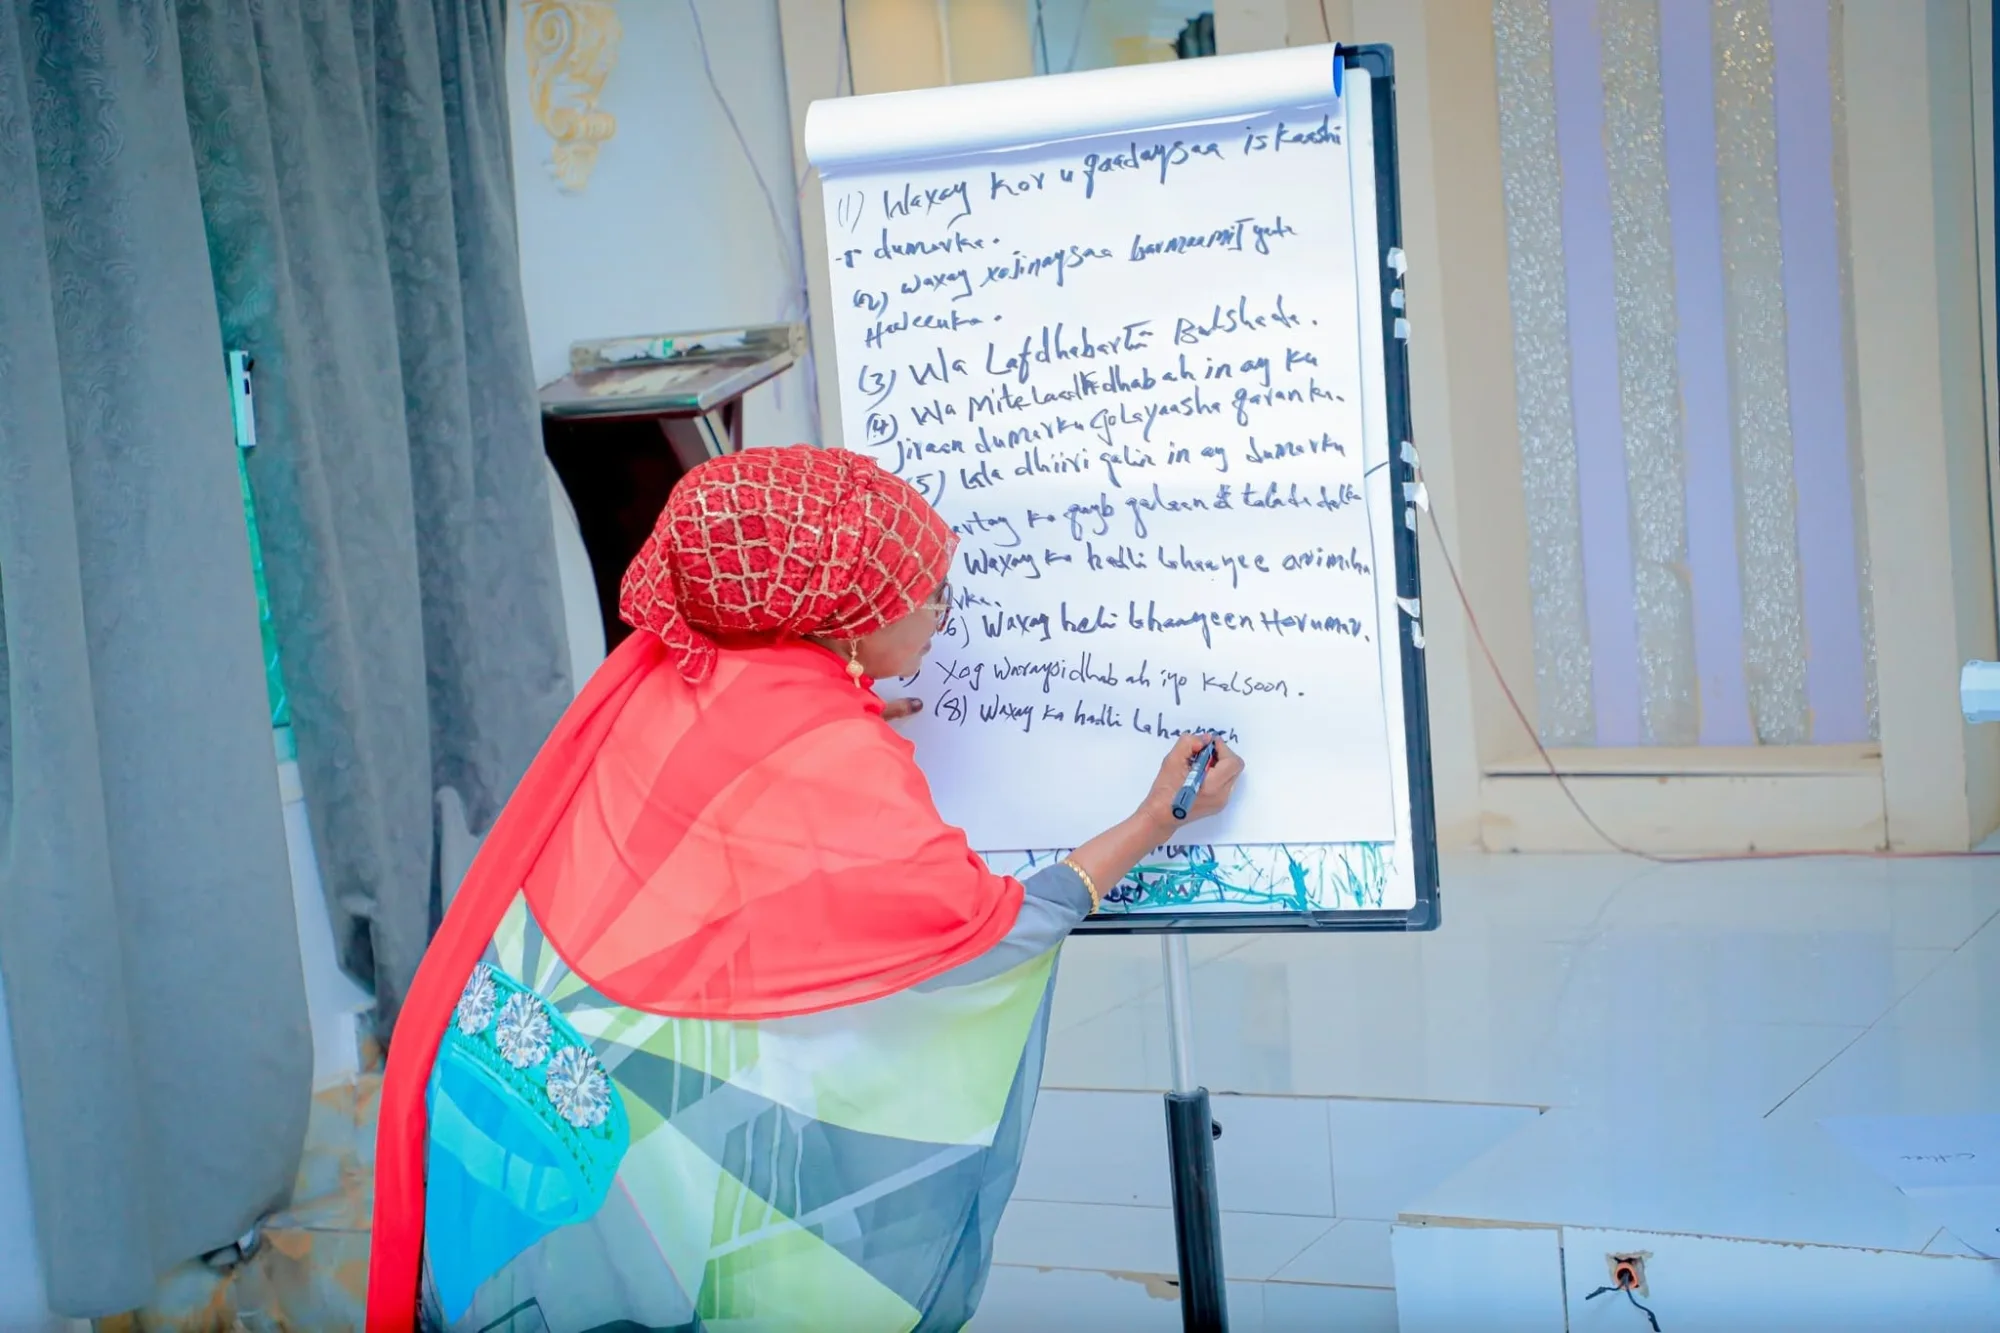 (1) Waxay kor u qaadaysaa iskaashi
dumarka.
(2) waxay xojinaysaa barnaamijyada
Haweenka.
(3) Wa Lafdhabarta Bulshada.
(4) Wa mite laadhidhabah in ay ka
Jiraan dumarku Golayaasha qaranka.
(5) Wa dhiiri galin in ay dumarku
ka qayb galaan talada dalka
Waxay ka hadli lahaayee arrimiha
(6) Waxay hadli lahaayeen Horumar.
Xog waraysi dhab ah iyo kalsooni.
(8) Waxay ka hadli lahaayeen